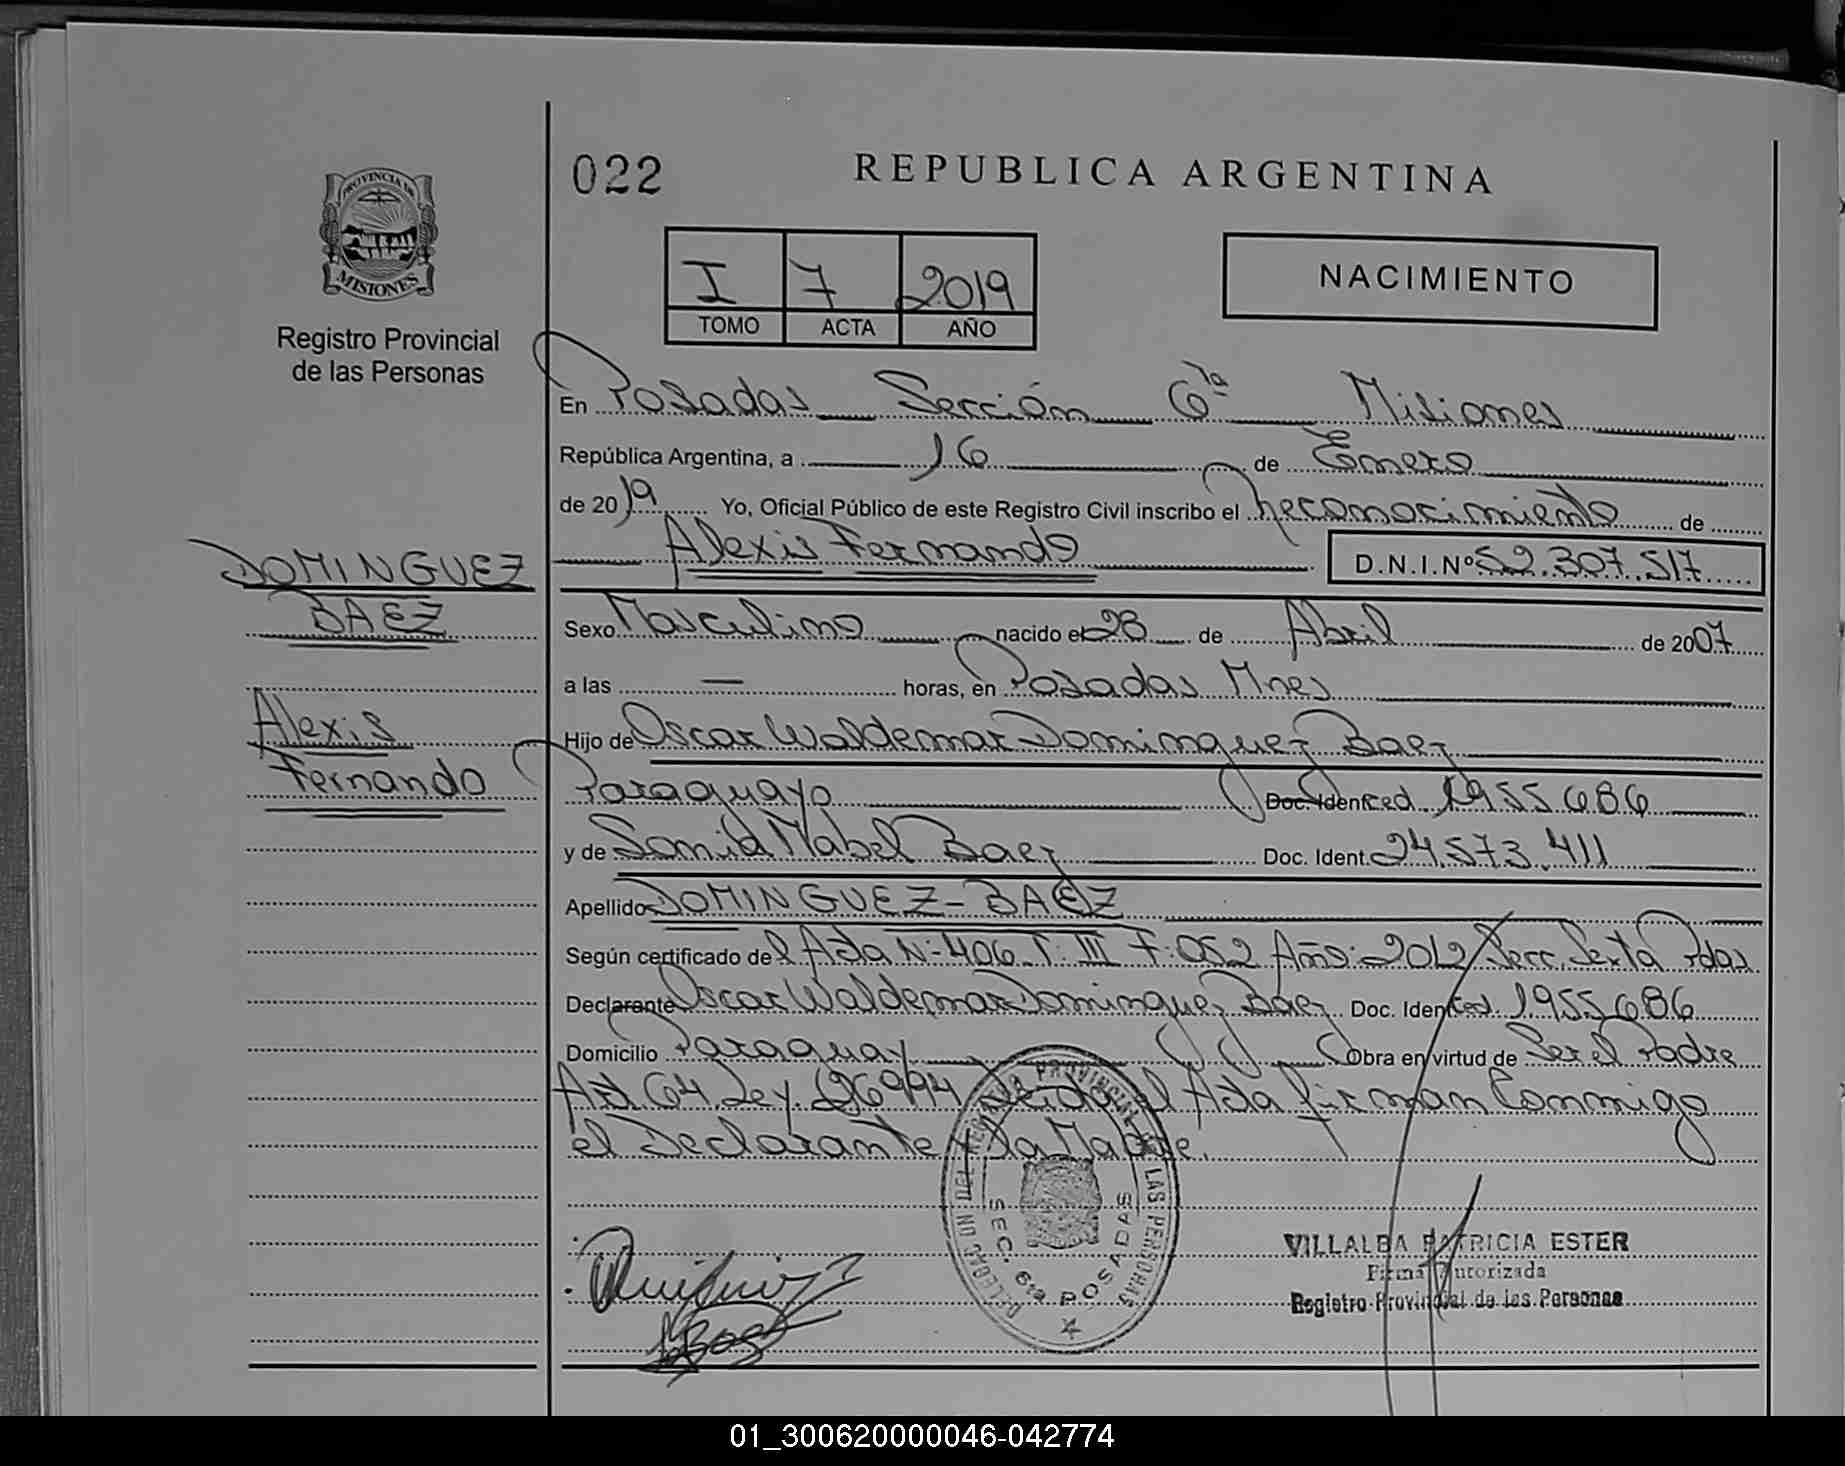 022
REPUBLICA ARGENTINA
PROVINCIA DE
MISIONES
Registro Provincial
de las Personas
I 7 2019
TOMO ACTA AÑO
NACIMIENTO
En Posadas Sección 6ta Misiones
República Argentina, a 16 de Enero
de 2019 Yo, Oficial Público de este Registro Civil inscribo el Reconocimiento de
Alexis Fernando D.N.I.Nº 52.307.517
DOMINGUEZ
BAEZ
Alexis
Fernando
Sexo Masculino nacido el 28 de Abril de 2007
a las — horas, en Posadas Mnes
Hijo de Oscar Waldemar Dominguez Baez
Paraguayo Doc. Ident. Ced. 1955686
y de Sonia Mabel Baez Doc. Ident. 24.573.411
Apellido DOMINGUEZ - BAEZ
Según certificado del Acta N: 406 T: III F: 052 Año: 2012 Secc. Sexta Pdas
Declarante Oscar Waldemar Dominguez Baez Doc. Ident. Ced. 1955686
Domicilio Paraguay Obra en virtud de Ser el Padre
Art 64 Ley 26994 Leida el Acta firman Conmigo
el Declarante y la Madre.
DELEGACION DEL REGISTRO PROVINCIAL DE LAS PERSONAS
SEC. 6ta POSADAS
VILLALBA PATRICIA ESTER
Firma Autorizada
Registro Provincial de las Personas
01_300620000046-042774